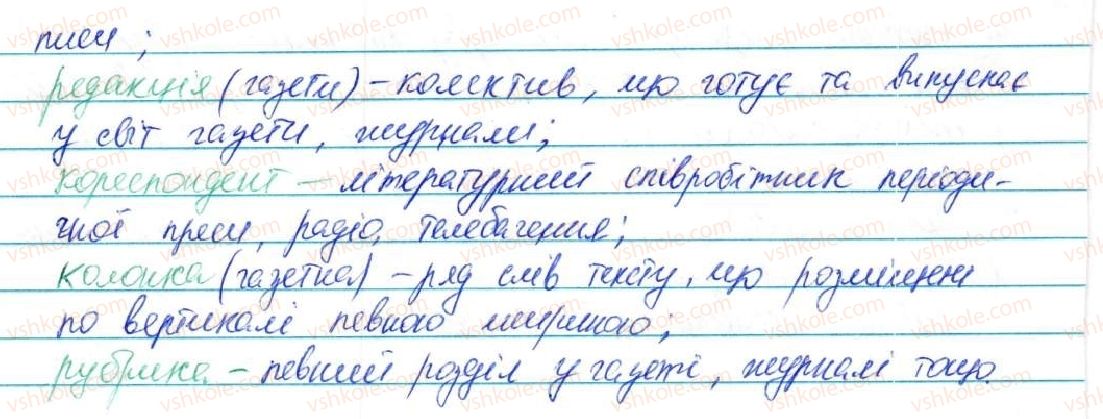 писи;
редакція (газети) – колектив, що готує та випускає
у світ газети, журнали;
кореспондент – літературний співробітник періоди-
чної преси, радіо, телебачення;
колонка (газетна) – ряд слів тексту, що розміщені
по вертикалі певною шириною;
рубрика – певний розділ у газеті, журналі тощо.